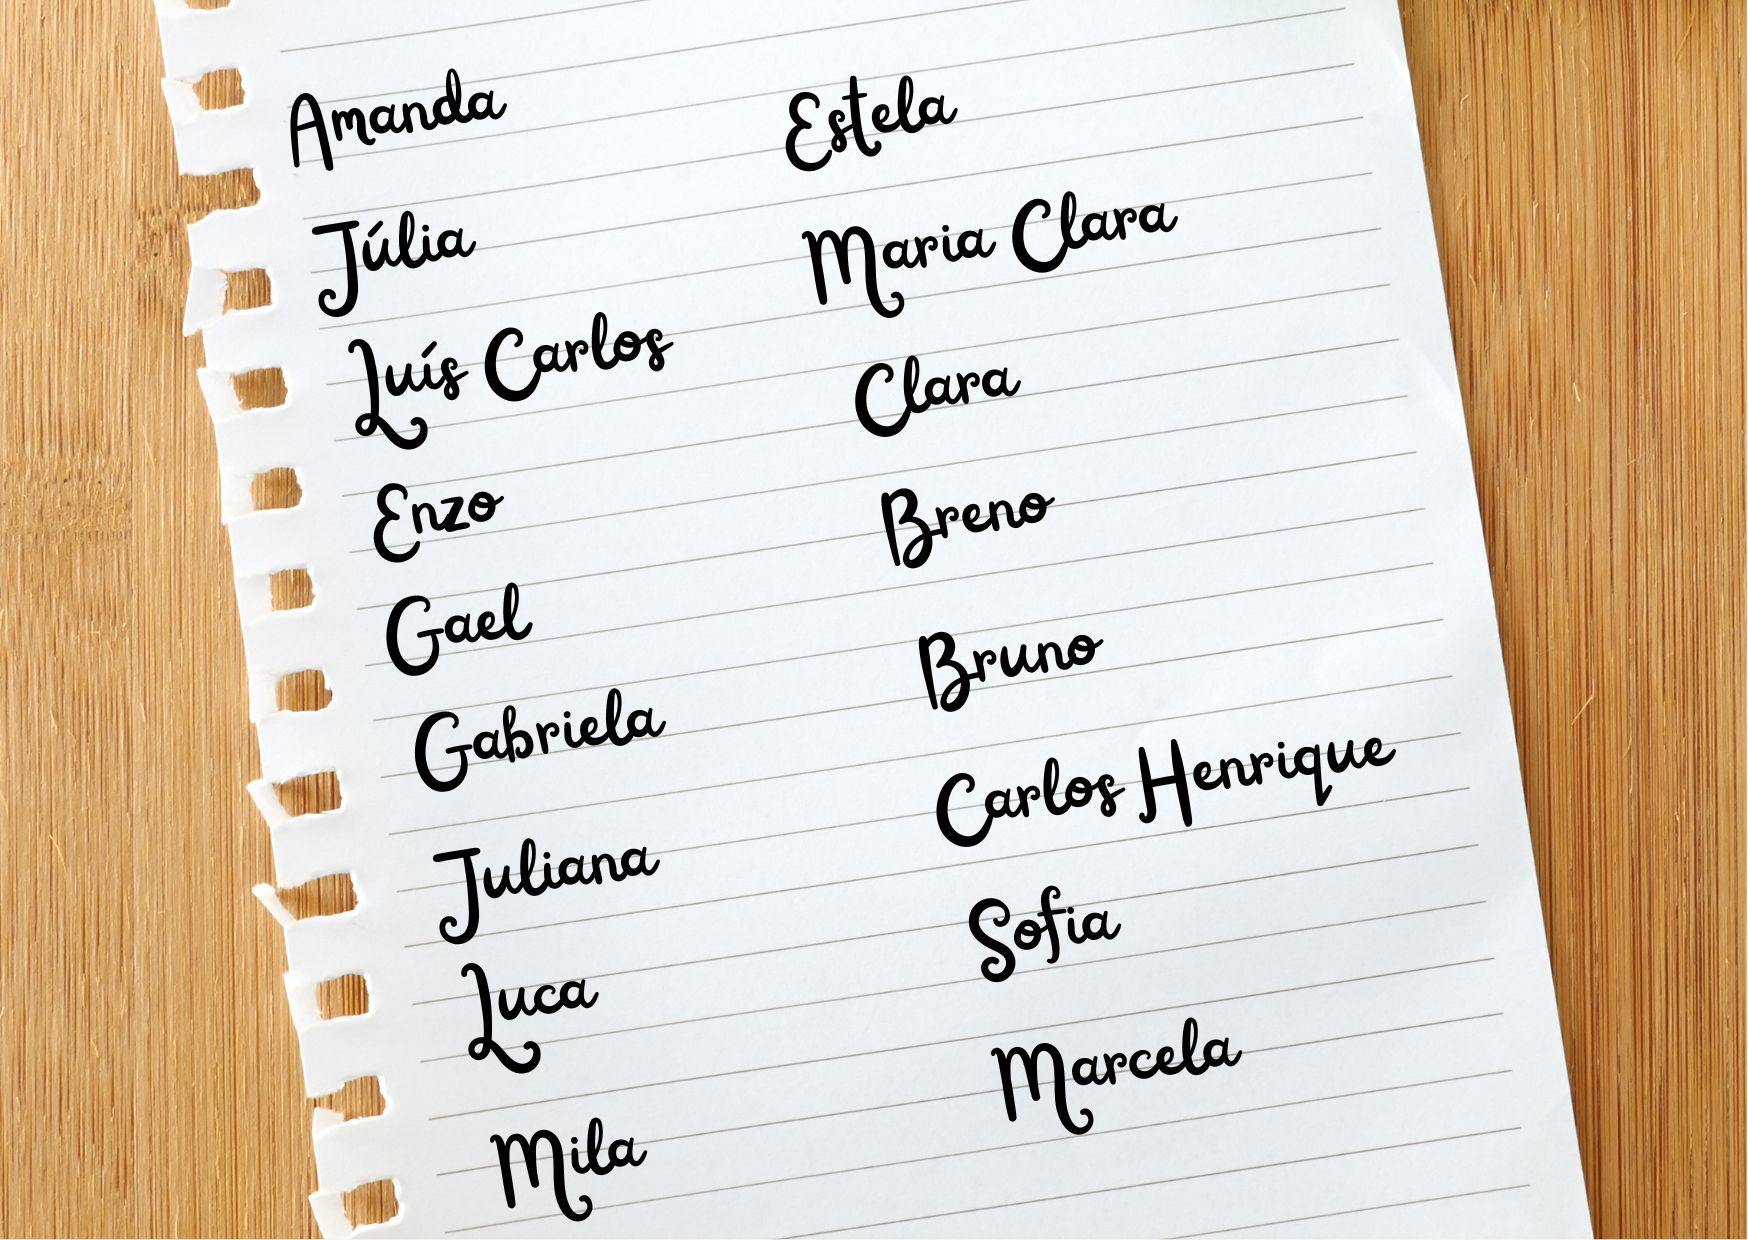 Amanda
Júlia
Luís Carlos
Enzo
Gael
Gabriela
Juliana
Luca
Mila
Estela
Maria Clara
Clara
Breno
Bruno
Carlos Henrique
Sofia
Marcela